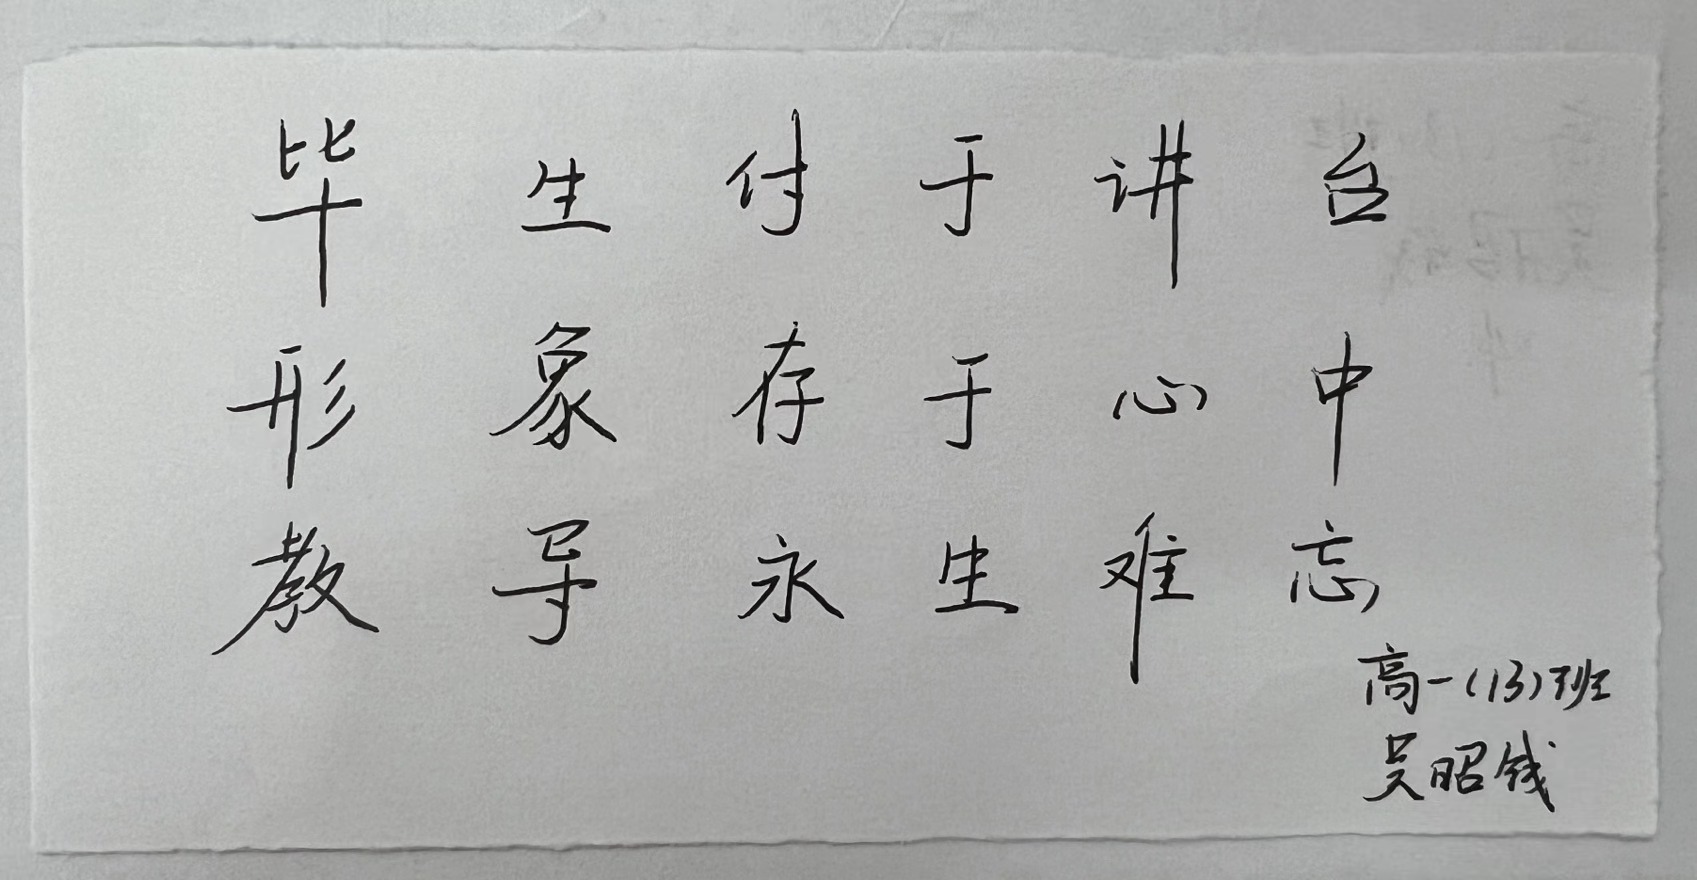 毕生付于讲台
形象存于心中
教导永生难忘
高一(13)班
吴昭钱